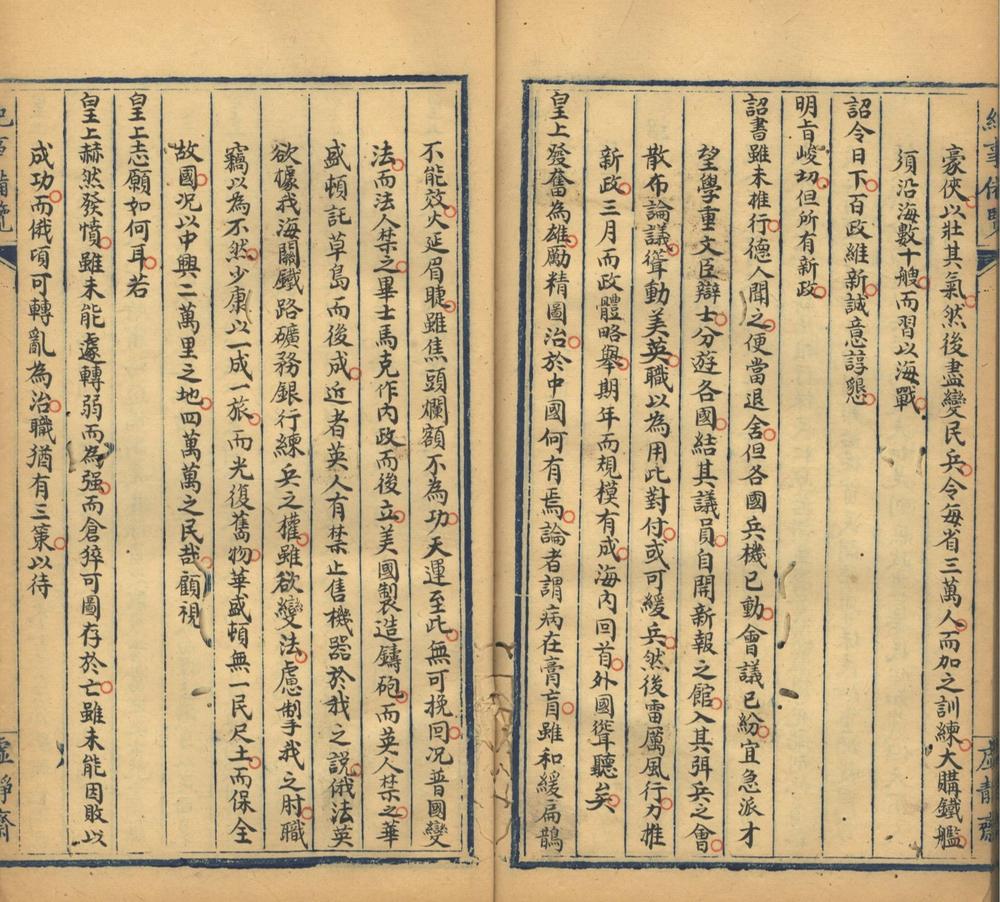 豪俠以壯其氣然後盡變民兵令每省三萬人而加之訓練大購鐵艦
須沿海數十艘而習以海戰
詔令日下百政維新誠意諄懇
明旨峻切但所有新政
詔書雖未推行德人聞之便當退舍但各國兵機已動會議已紛宜急派才
望學重文臣辯士分遊各國結其議員自開新報之館入其弭兵之會
散布論議聳動美英職以為用此對付或可緩兵然後雷厲風行力推
新政三月而政體略舉期年而規模有成海內回首外國聳聽矣
皇上發奮為雄勵精圖治於中國何有焉論者謂病在膏肓雖和緩扁鵲
不能效火延眉睫雖焦頭爛額不為功天運至此無可挽回况普國變
法而法人禁之畢士馬克作內政而後立美國製造鑄砲而英人禁之華
盛頓託草島而後成近者英人有禁止售機器於我之說俄法英
欲據我海關鐵路礦務銀行練兵之權雖欲變法慮掣我之肘職
竊以為不然少康以一成一旅而光復舊物華盛頓無一民尺土而保全
故國况以中興二萬里之地四萬萬之民哉顧視
皇上志願如何耳若
皇上赫然發憤雖未能遽轉弱而為强而倉猝可圖存於亡雖未能因敗以
成功而俄頃可轉亂為治職猶有三策以待
虛靜齋